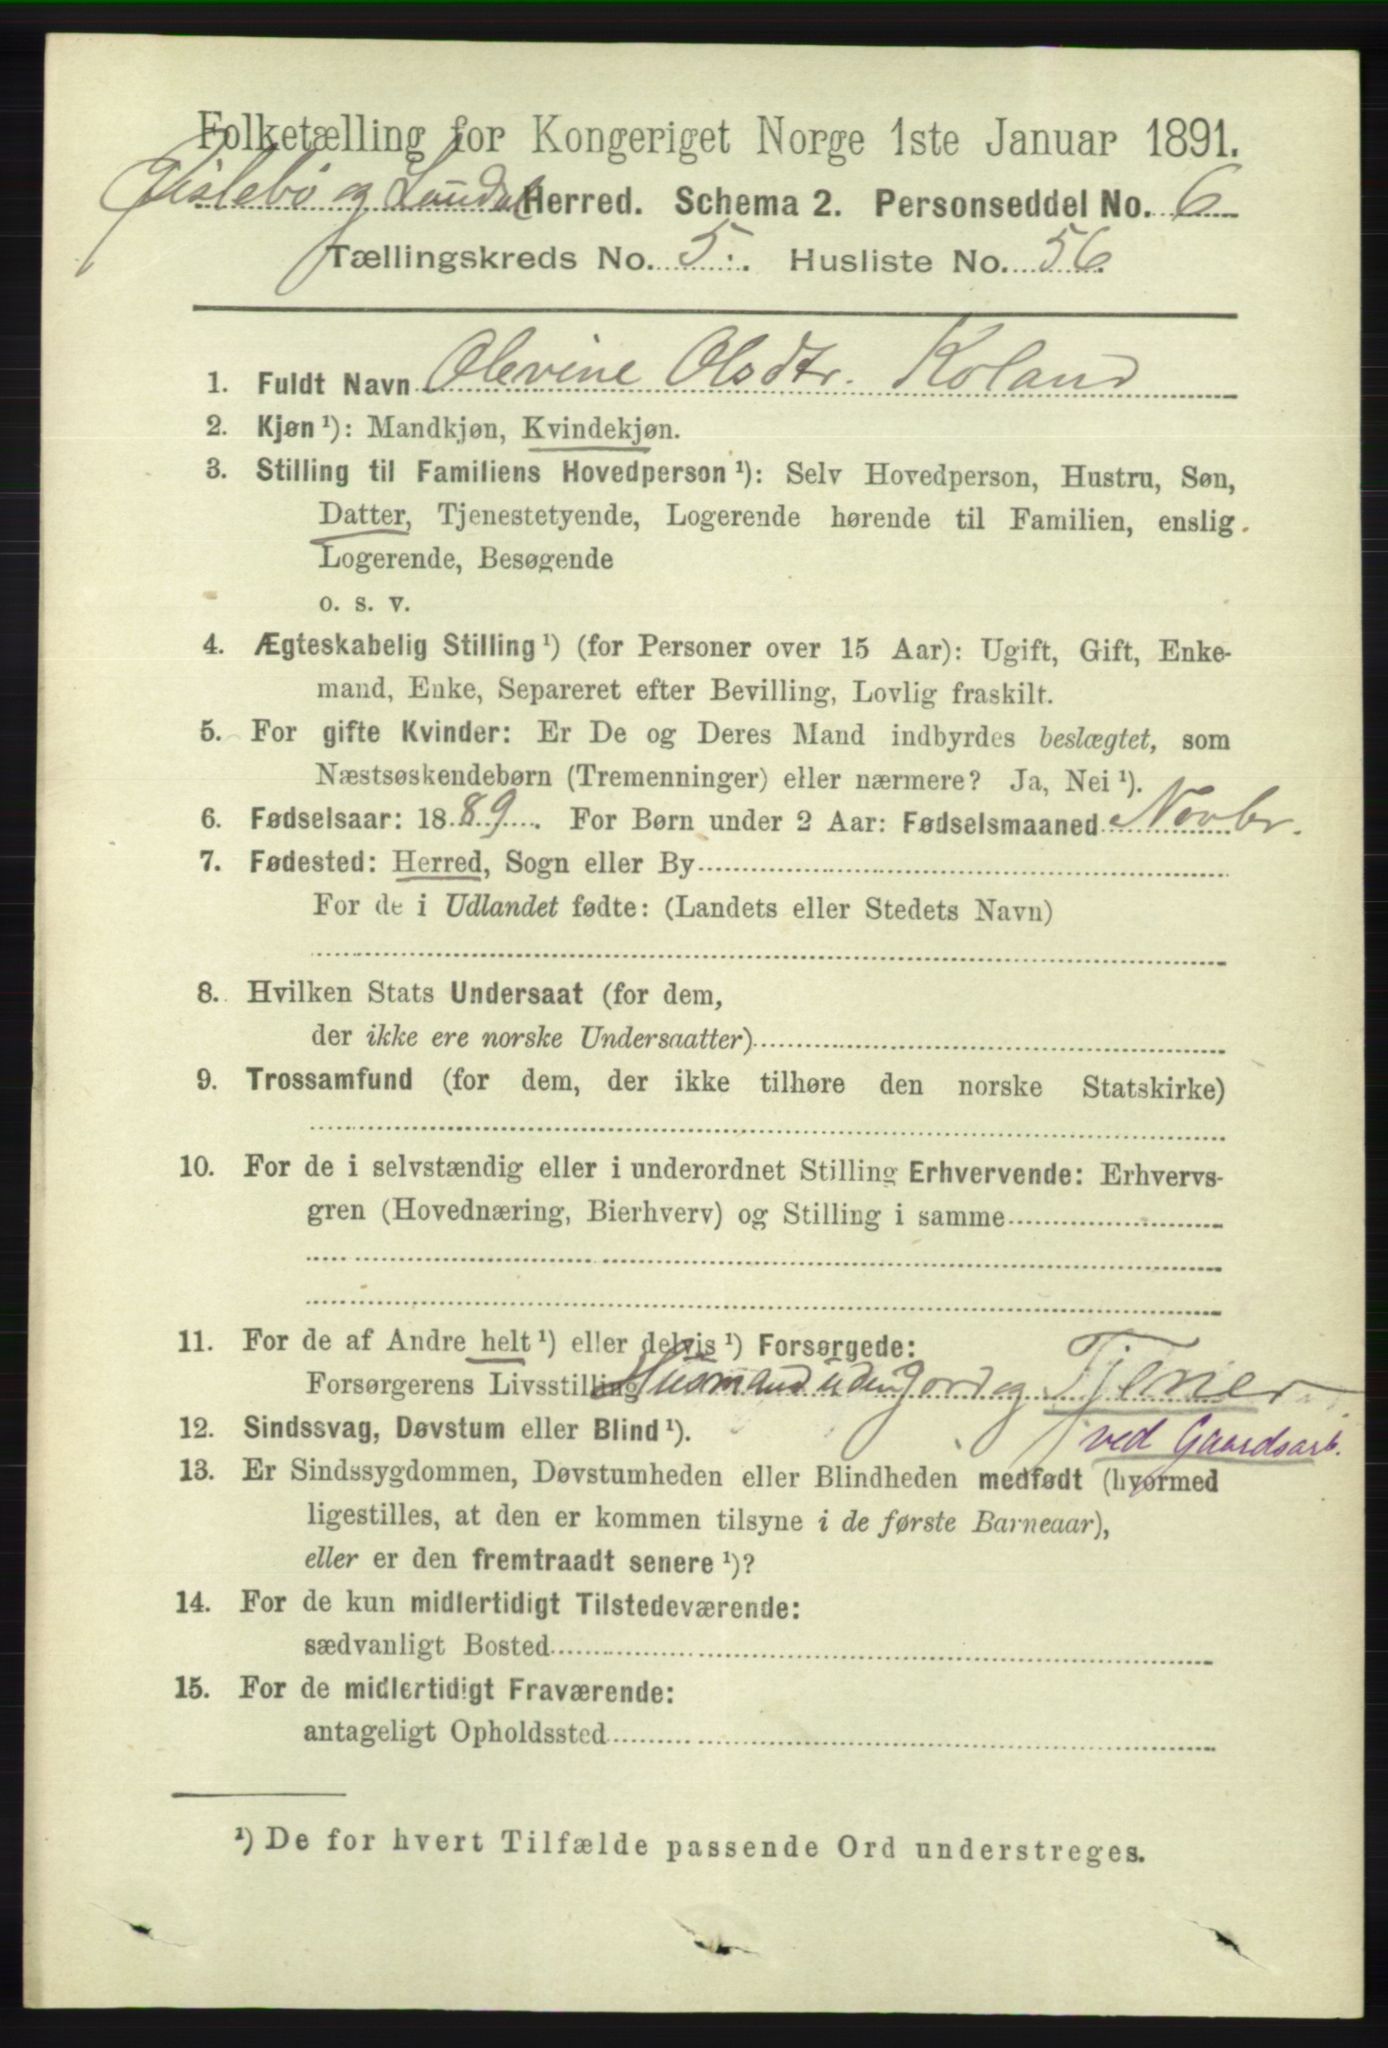 Folketælling for Kongeriget Norge 1ste Januar 1891.
Øislebø og Laudal Herred. Schema 2. Personseddel No. 6
Tællingskreds No. 5. Husliste No. 56.
1. Fuldt Navn Olevine Olsdtr. Koland
2. Kjøn ¹): Mandkjøn, Kvindekjøn.
3. Stilling til Familiens Hovedperson ¹): Selv Hovedperson, Hustru, Søn,
Datter, Tjenestetyende, Logerende hørende til Familien, enslig
Logerende, Besøgende
o. s. v.
4. Ægteskabelig Stilling ¹) (for Personer over 15 Aar): Ugift, Gift, Enke-
mand, Enke, Separeret efter Bevilling, Lovlig fraskilt.
5. For gifte Kvinder: Er De og Deres Mand indbyrdes beslægtet, som
Næstsøskendebørn (Tremenninger) eller nærmere? Ja, Nei ¹).
6. Fødselsaar: 1889. For Børn under 2 Aar: Fødselsmaaned Novbr.
7. Fødested: Herred, Sogn eller By
For de i Udlandet fødte: (Landets eller Stedets Navn)
8. Hvilken Stats Undersaat (for dem,
der ikke ere norske Undersaatter)
9. Trossamfund (for dem, der ikke tilhøre den norske Statskirke)
10. For de i selvstændig eller i underordnet Stilling Erhvervende: Erhvervs-
gren (Hovednæring, Bierhverv) og Stilling i samme
11. For de af Andre helt ¹) eller delvis ¹) Forsørgede:
Forsørgerens Livsstilling Husmand uden Jord og Tjener
ved Gaardsarb.
12. Sindssvag, Døvstum eller Blind ¹).
13. Er Sindssygdommen, Døvstumheden eller Blindheden medfødt (hvormed
ligestilles, at den er kommen tilsyne i de første Barneaar),
eller er den fremtraadt senere ¹)?
14. For de kun midlertidigt Tilstedeværende:
sædvanligt Bosted
15. For de midlertidigt Fraværende:
antageligt Opholdssted
¹) De for hvert Tilfælde passende Ord understreges.